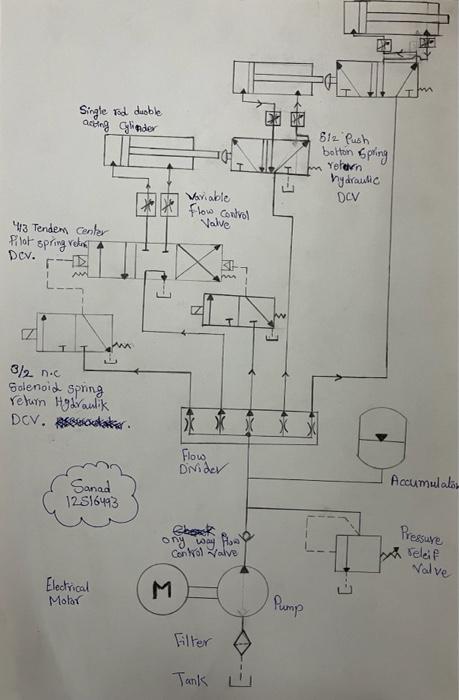 Single rod duoble
acting Cylinder
5/2 Push
botton spring
return
hydraulic
DCV
Variable
Flow control
Valve
4/3 Tendem Center
Pilot spring return
DCV.
3/2 n.c
Solenoid spring
return Hydraulik
DCV.
Flow
Divider
Accumulator
Sanad
12S16493
ony way flow
Control valve
Pressure
releif
Valve
Electrical
Motor
M
Pump
Filter
Tank